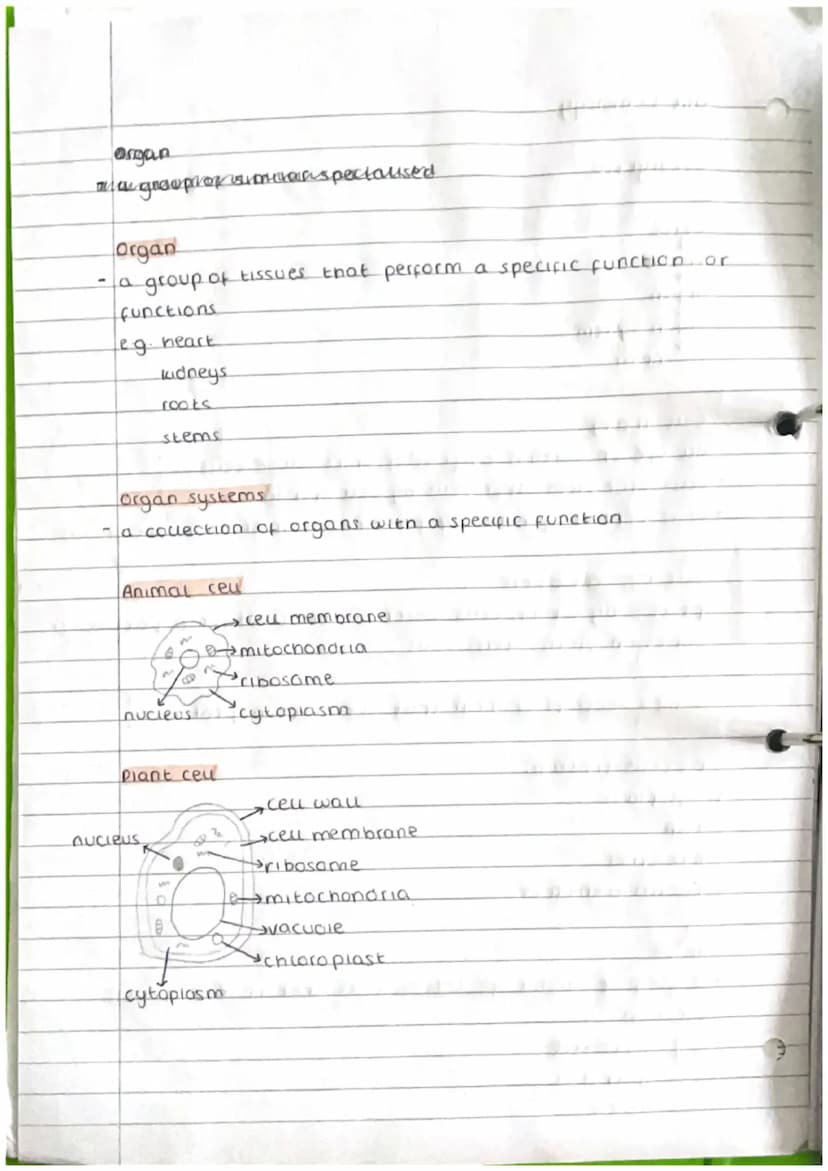 organ
a group of similar specialised
Organ
- a group of tissues that perform a specific function or
functions
e.g. heart
kidneys
roots
stems
Organ systems
- a collection of organs with a specific function
Animal cell
cell membrane
mitochondria
ribosome
nucleus
cytoplasm
Plant cell
cell wall
nucleus
cell membrane
ribosome
mitochondria
vacuole
chloroplast
cytoplasm